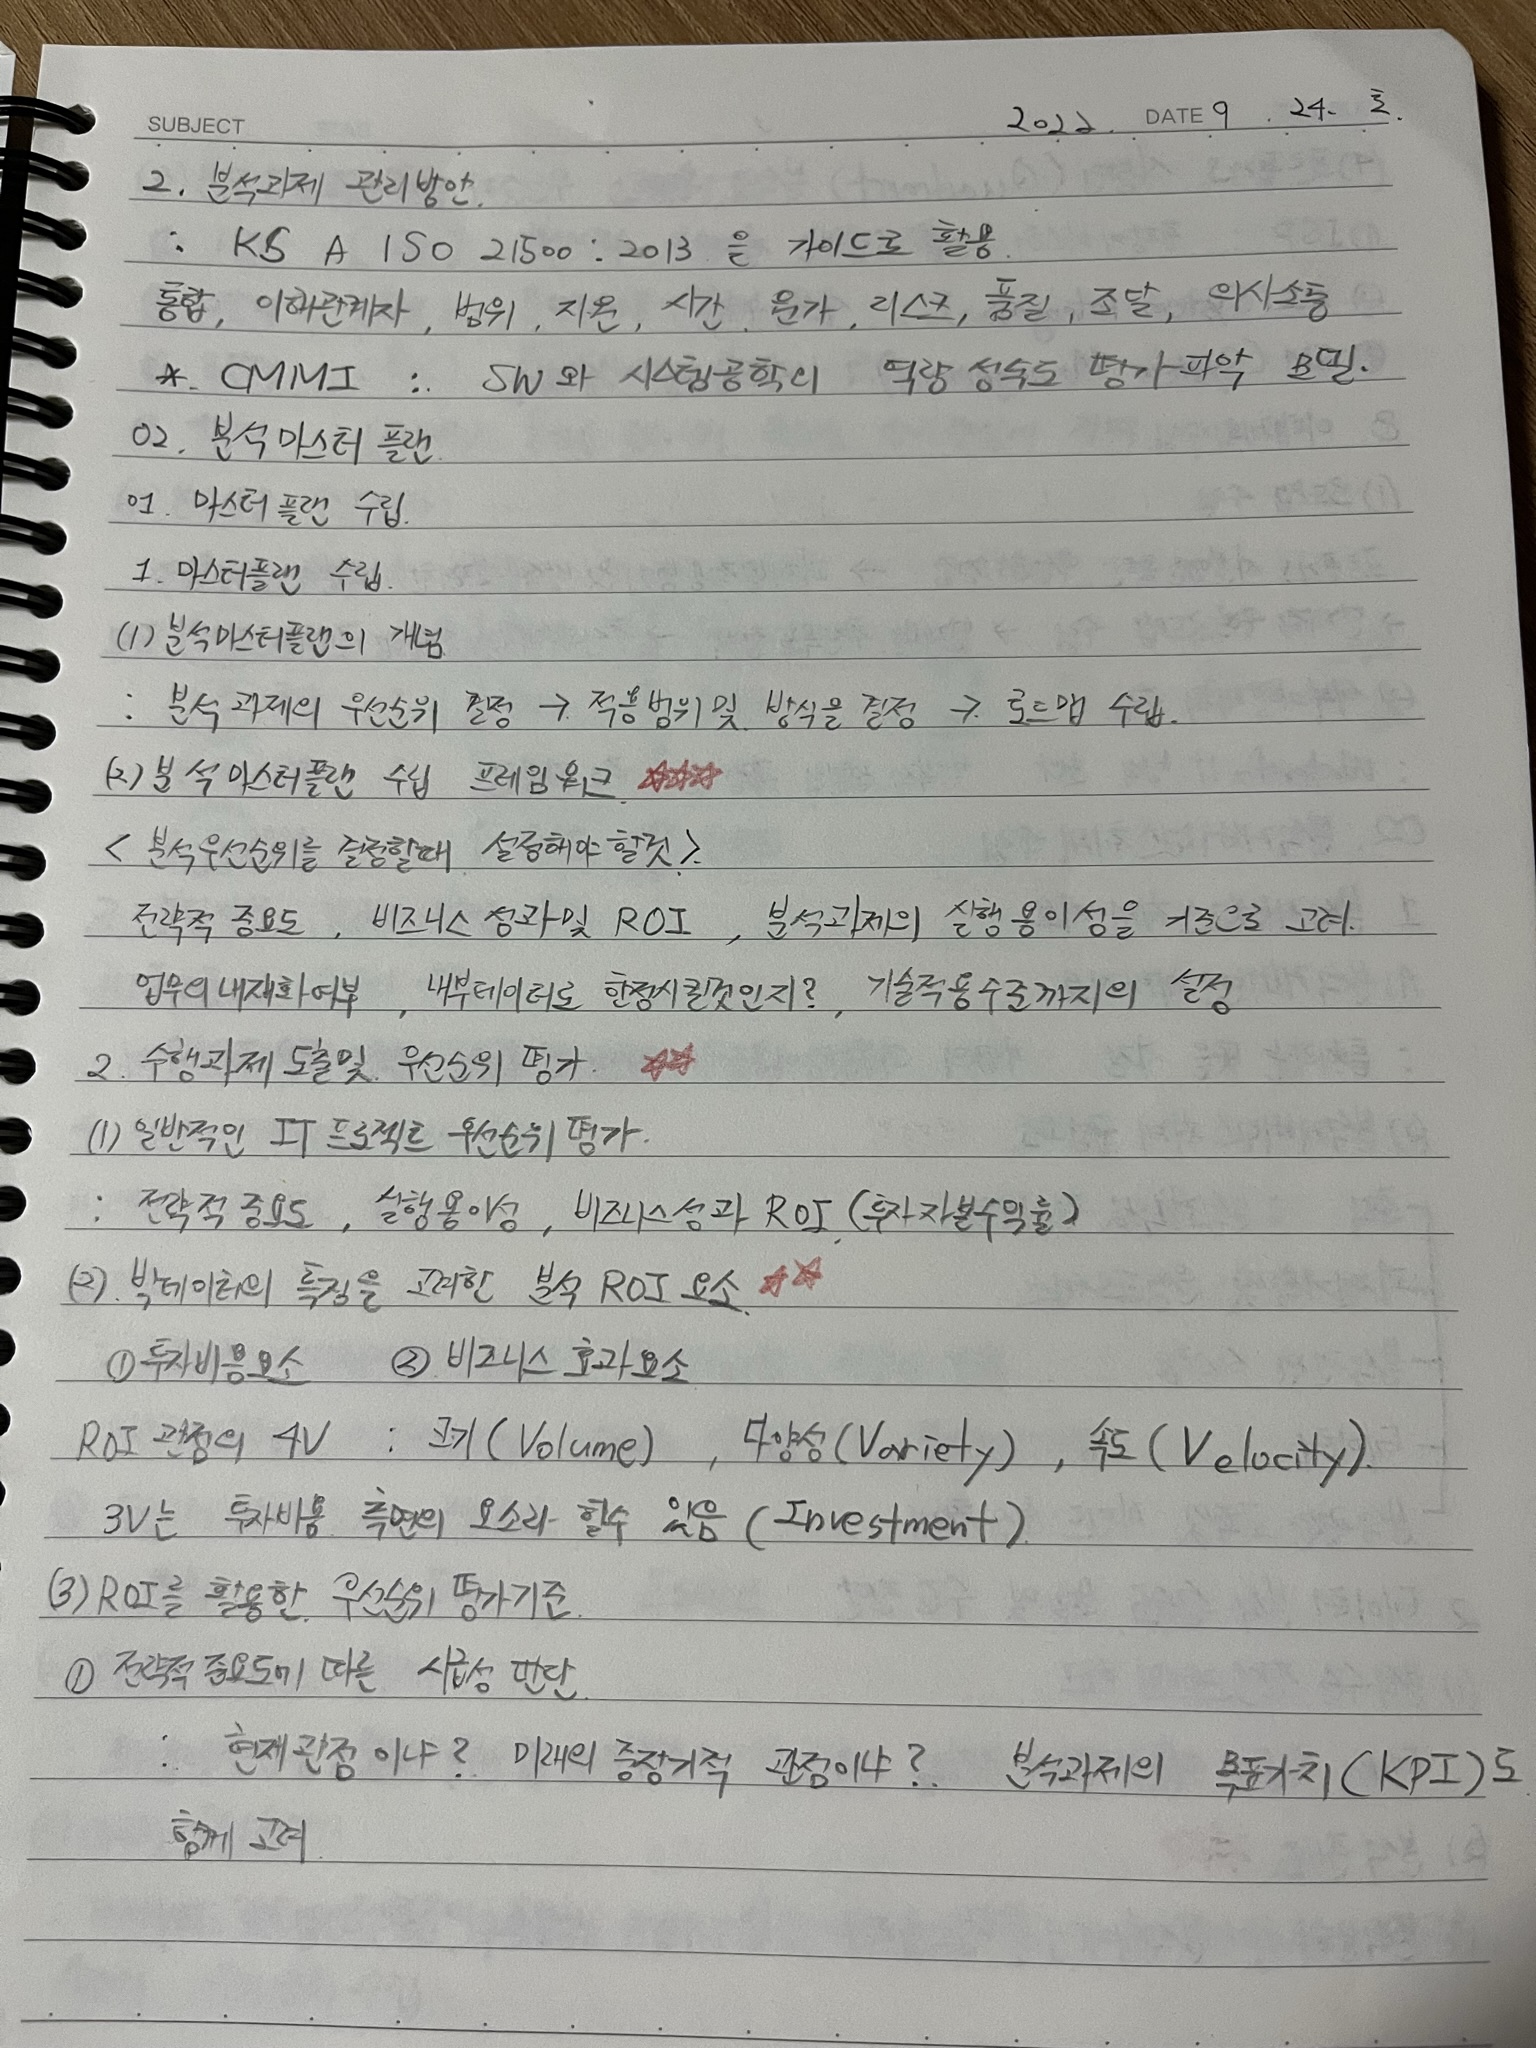 SUBJECT 2022. DATE 9. 24. 토.
2. 분석과제 관리방안.
: KS A ISO 21500 : 2013 을 가이드로 활용.
통합, 이해관계자, 범위, 자원, 시간, 원가, 리스크, 품질, 조달, 의사소통
*. CMMI : SW와 시스템공학의 역량 성숙도 평가 파악 모델.
02. 분석마스터 플랜.
01. 마스터 플랜 수립.
1. 마스터플랜 수립.
(1) 분석마스터플랜의 개념
: 분석 과제의 우선순위 결정 → 적용범위 및 방식을 결정 → 로드맵 수립.
(2) 분석마스터플랜 수립 프레임워크 ☆☆☆
< 분석우선순위를 결정할때 설정해야 할것 >
전략적 중요도, 비즈니스 성과 및 ROI, 분석과제의 실행용이성을 기준으로 고려.
업무의 내재화여부, 내부데이터로 한정시킬것인지?, 기술적용수준까지의 설정
2. 수행과제 도출및 우선순위 평가. ☆☆
(1) 일반적인 IT 프로젝트 우선순위 평가.
: 전략적 중요도, 실행용이성, 비즈니스성과 ROI (투자자본수익률)
(2). 빅데이터의 특징을 고려한 분석 ROI 요소. ☆☆
① 투자비용요소 ② 비즈니스 효과요소
ROI 관점의 4V : 크기(Volume), 다양성(Variety), 속도(Velocity).
3V는 투자비용 측면의 요소라 할수 있음 (Investment).
(3) ROI를 활용한 우선순위 평가기준.
① 전략적 중요도에 따른 시급성 판단.
: 현재관점이냐? 미래의 중장기적 관점이냐?. 분석과제의 목표가치(KPI)도
함께 고려.